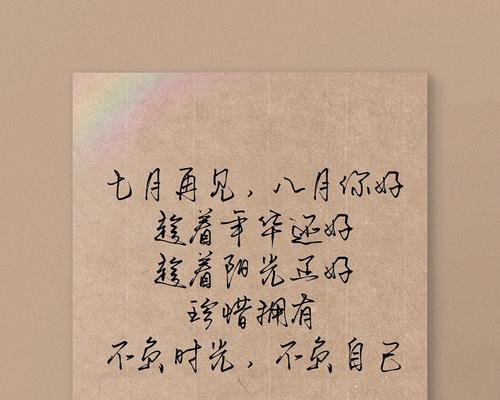 七月再见，八月你好
趁着年华还好
趁着阳光正好
珍惜拥有
不负时光，不负自己